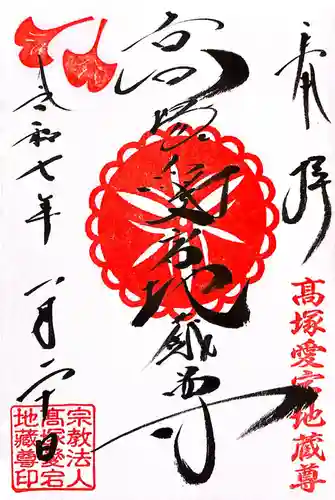 奉拝
髙塚愛宕地蔵尊
高塚愛宕地蔵尊
令和七年八月二十日
宗教法人
髙塚愛宕
地蔵尊印